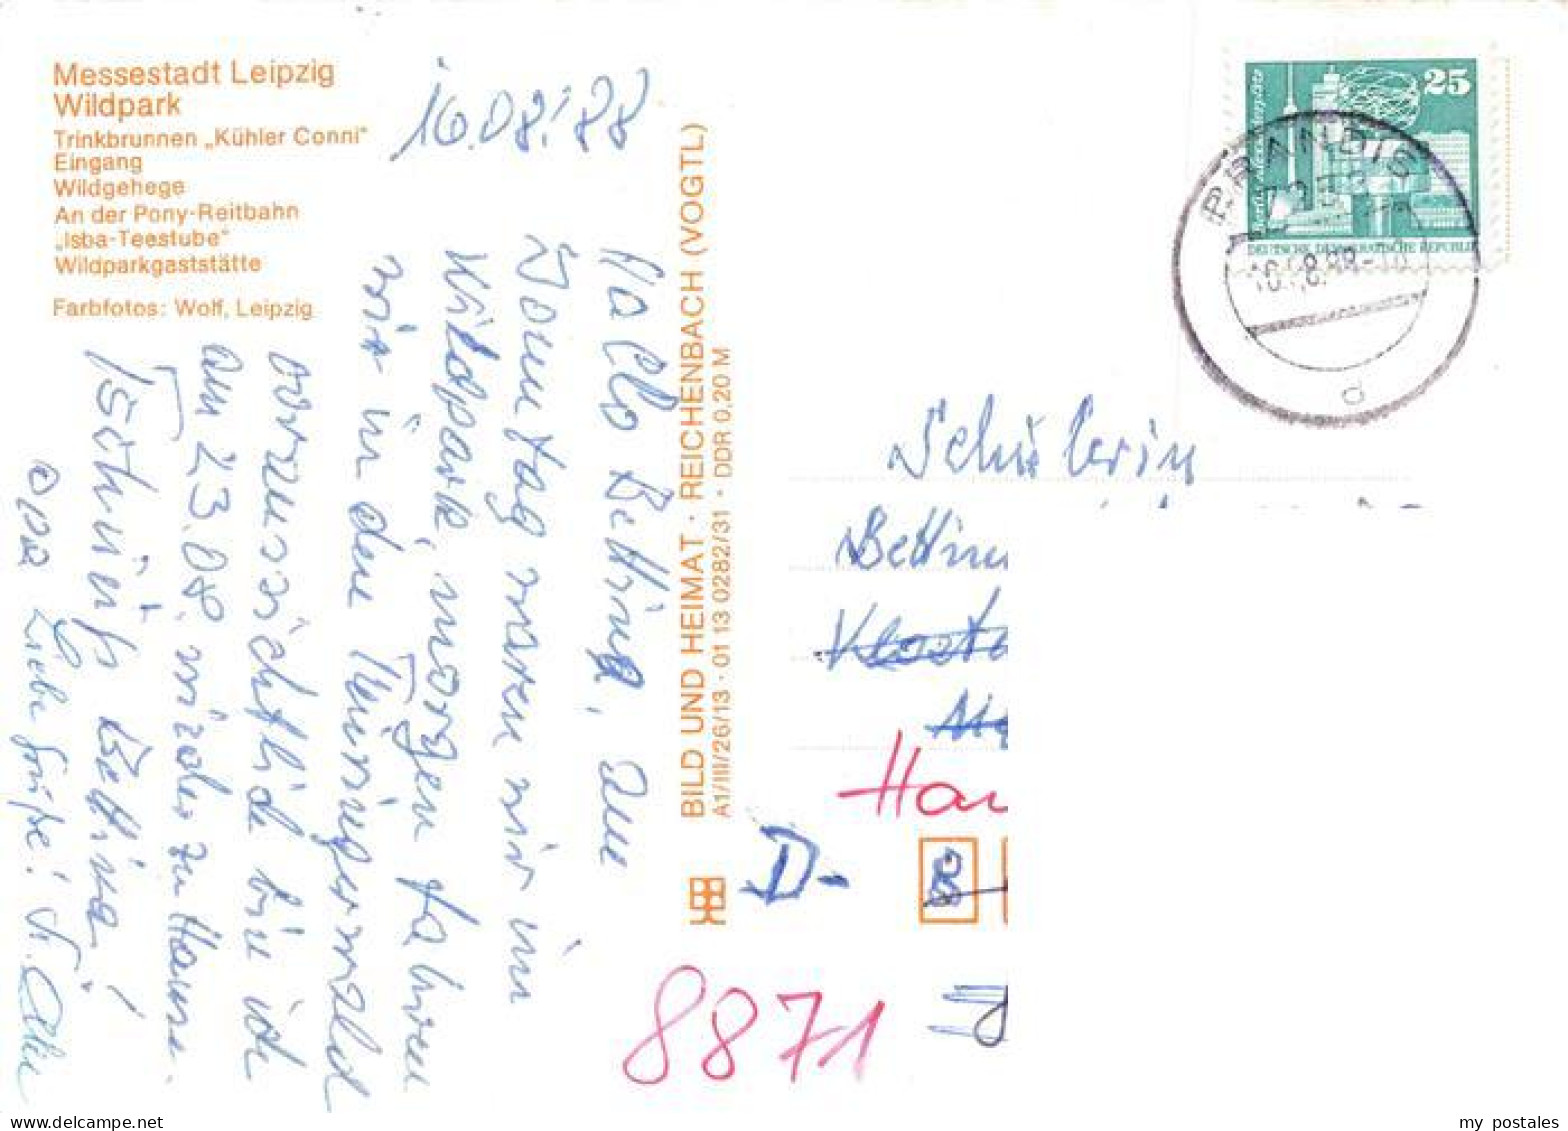 Messestadt Leipzig
Wildpark
Trinkbrunnen „Kühler Conni"
Eingang
Wildgehege
An der Pony-Reitbahn
„Isba-Teestube"
Wildparkgaststätte
Farbfotos: Wolf, Leipzig
16.08.'88
Hallo Bettina, am
Sonntag waren wir im
Wildpark, morgen fahren
wir in den Thüringerwald
voraussichtlich bin ich
am 23.08. wieder zu Hause.
Tschüß Bettina!
Liebe Grüße!
BILD UND HEIMAT · REICHENBACH (VOGTL)
A1/III/26/13 · 01 13 0282/31 · DDR 0,20 M
25
DEUTSCHE DEMOKRATISCHE REPUBLIK
BRANDIS
Schülerin
Bettin
Kloste
Hau
D-
8871
my postales